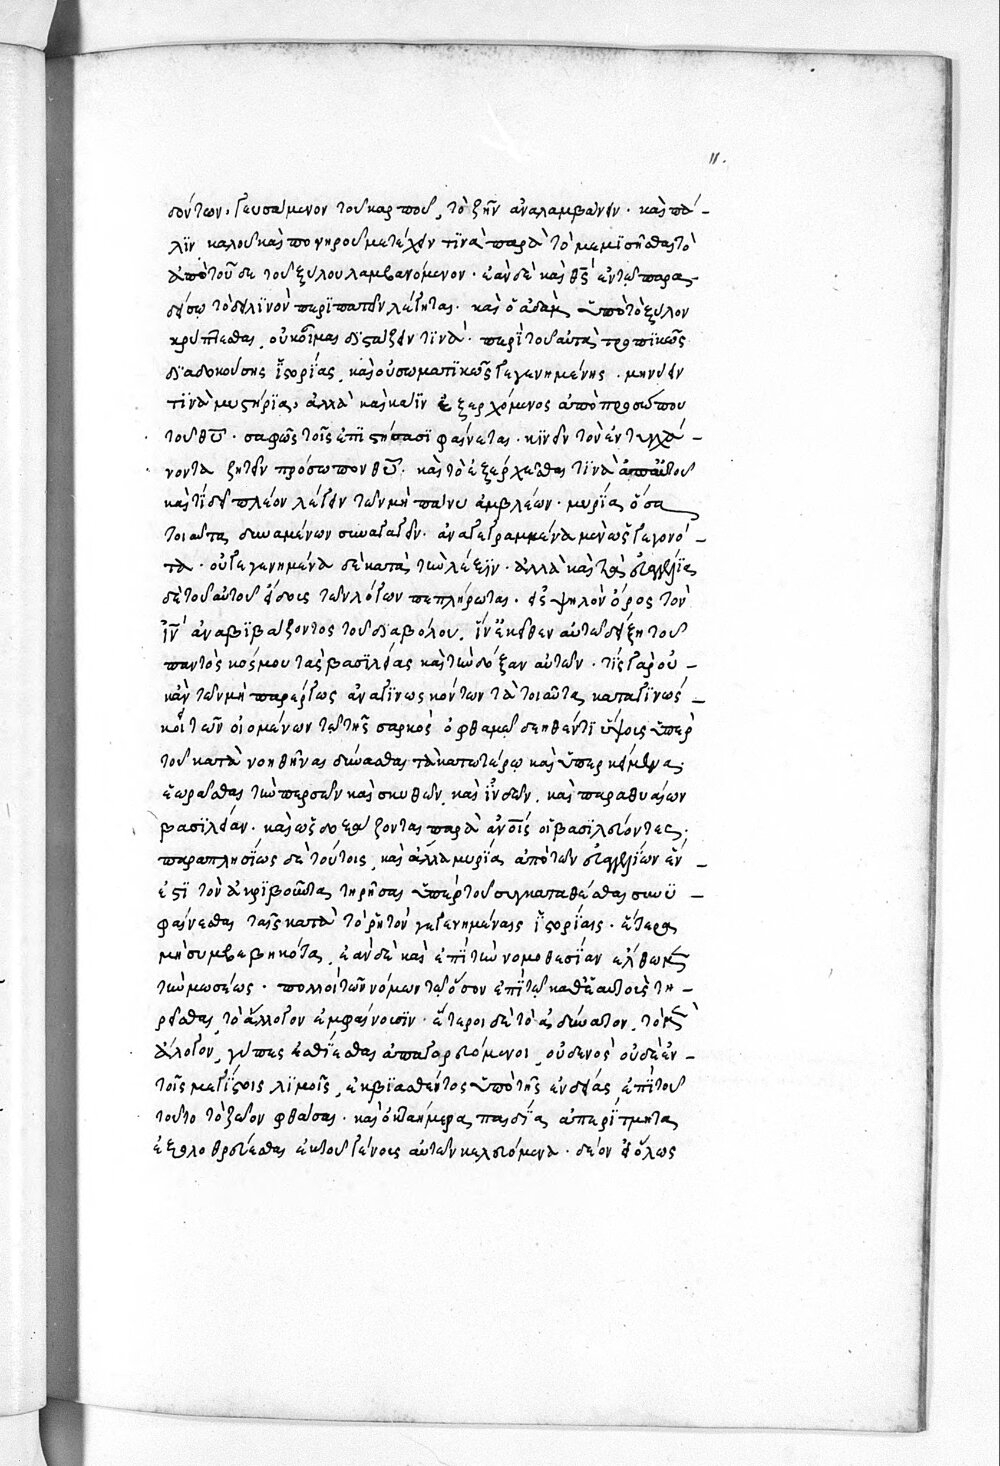 11.
δόντων, γευσάμενον τοῦ καρποῦ, τὸ ζῆν ἀναλαμβάνειν· καὶ πά-
λϊν καλοῦ καὶ πονηροῦ μετέχειν τϊνὰ παρὰ τὸ μεμϊσῆσθαι τὸ
ἀπὸ τοῦδε τοῦ ξύλου λαμβανόμενον· ἐὰν δὲ καὶ θς̅ ἐν τῶ παρα-
δείσω τὸ δειλϊνὸν περϊπατεῖν λέγηται· καὶ ὁ ἀδὰμ ὑπὸ τὸ ξύλον
κρύπτεσθαι, οὐκ οἶμαι δϊστάξειν τϊνὰ· περὶ τοῦ αὐτὰ τροπϊκῶς
διὰ δοκούσης ἱστορίας, καὶ οὐ σωματϊκῶς γεγενημένης· μηνύειν
τϊνὰ μυστήρϊα, ἀλλὰ καὶ κάϊν ἐξερχόμενος ἀπὸ προσώπου
τοῦ θῦ· σαφῶς τοῖς ἐπϊστήσασϊ φαίνεται· κϊνεῖν τὸν ἐντυγχά-
νοντα ζητεῖν πρόσωπον θῦ· καὶ τὸ ἐξέρχεσθαι τϊνὰ ἀπ αὐτοῦ
καὶ τί δεῖ πλέον λέγειν τῶν μὴ πάνυ ἀμβλέων· μυρία ὅσα
τοιαῦτα δυναμένων συναγαγεῖν· ἀναγεγραμμένα μὲν ὡς γεγονό-
τα· οὐ γεγενημένα δὲ κατὰ τὴν λέξϊν· ἀλλὰ καὶ τὰ εὐαγγέλϊα
δὲ τοῦ αὐτοῦ εἴδους τῶν λόγων πεπλήρωται· εἰς ὑψηλὸν ὄρος τὸν
ἰν̅ ἀναβϊβάζοντος τοῦ διαβόλου, ἵν ἐκεῖθεν αὐτῶ δείξη τοῦ
παντὸς κόσμου τὰς βασιλείας καὶ τὴν δόξαν αὐτῶν· τίς γὰρ οὐ-
κὰν τῶν μὴ παρέργως ἀναγϊνωσκόντων τὰ τοιαῦτα, καταγϊνώσ-
κοι τῶν οἰομένων τῶ τῆς σαρκὸς ὀφθαλμῶ δεηθέντϊ ὕψους ὑπὲρ
τοῦ κατανοηθῆναι δύνασθαι τὰ κατωτέρω καὶ ὑπερκείμενα,
ἑωρᾶσθαι τὴν περσῶν καὶ σκυθῶν, καὶ ἰνδῶν, καὶ παραθυαίων
βασϊλείαν· καὶ ὡς δοξάζονται παρὰ ἀνοῖς οἱ βασϊλεύοντες·
παραπλησίως δὲ τούτοις, καὶ ἄλλα μυρία ἀπὸ τῶν εὐαγγελίων ἔν-
εστϊ τὸν ἀκρϊβοῦντα τηρῆσαι ὑπὲρ τοῦ συγκαταθέσθαι συνυ-
φαίνεσθαι ταῖς κατὰ τὸ ῥητὸν γεγενημέναις ἱστορίαις· ἕτερα
μὴ συμβεβηκότα, ἐὰν δὲ καὶ ἐπὶ τὴν νομοθεσίαν ἔλθωμεν
τὴν μωσέως· πολλοὶ τῶν νόμων τῶ ὅσον ἐπὶ τῶ καθ ἑαυτοὺς τη-
ρεῖσθαι, τὸ ἄλογον ἐμφαίνουσϊν· ἕτεροι δὲ τὸ ἀδύνατον, τὸ μὲν
ἄλογον, γῦπες ἐσθίεσθαι ἀπαγορευόμενοι, οὐδενὸς οὐδὲ ἐν
τοῖς μεγίστοις λϊμοῖς, ἐκβϊασθέντος ὑπὸ τῆς ἐνδείας, ἐπὶ τοῦ
τουτο τὸ ζῶον φθάσαι· καὶ ὀκταήμερα παιδία ἀπερίτμητα
ἐξολοθρεύεσθαι ἐκ τοῦ γένους αὐτῶν κελευόμενα· δέον εἰ ὅλως